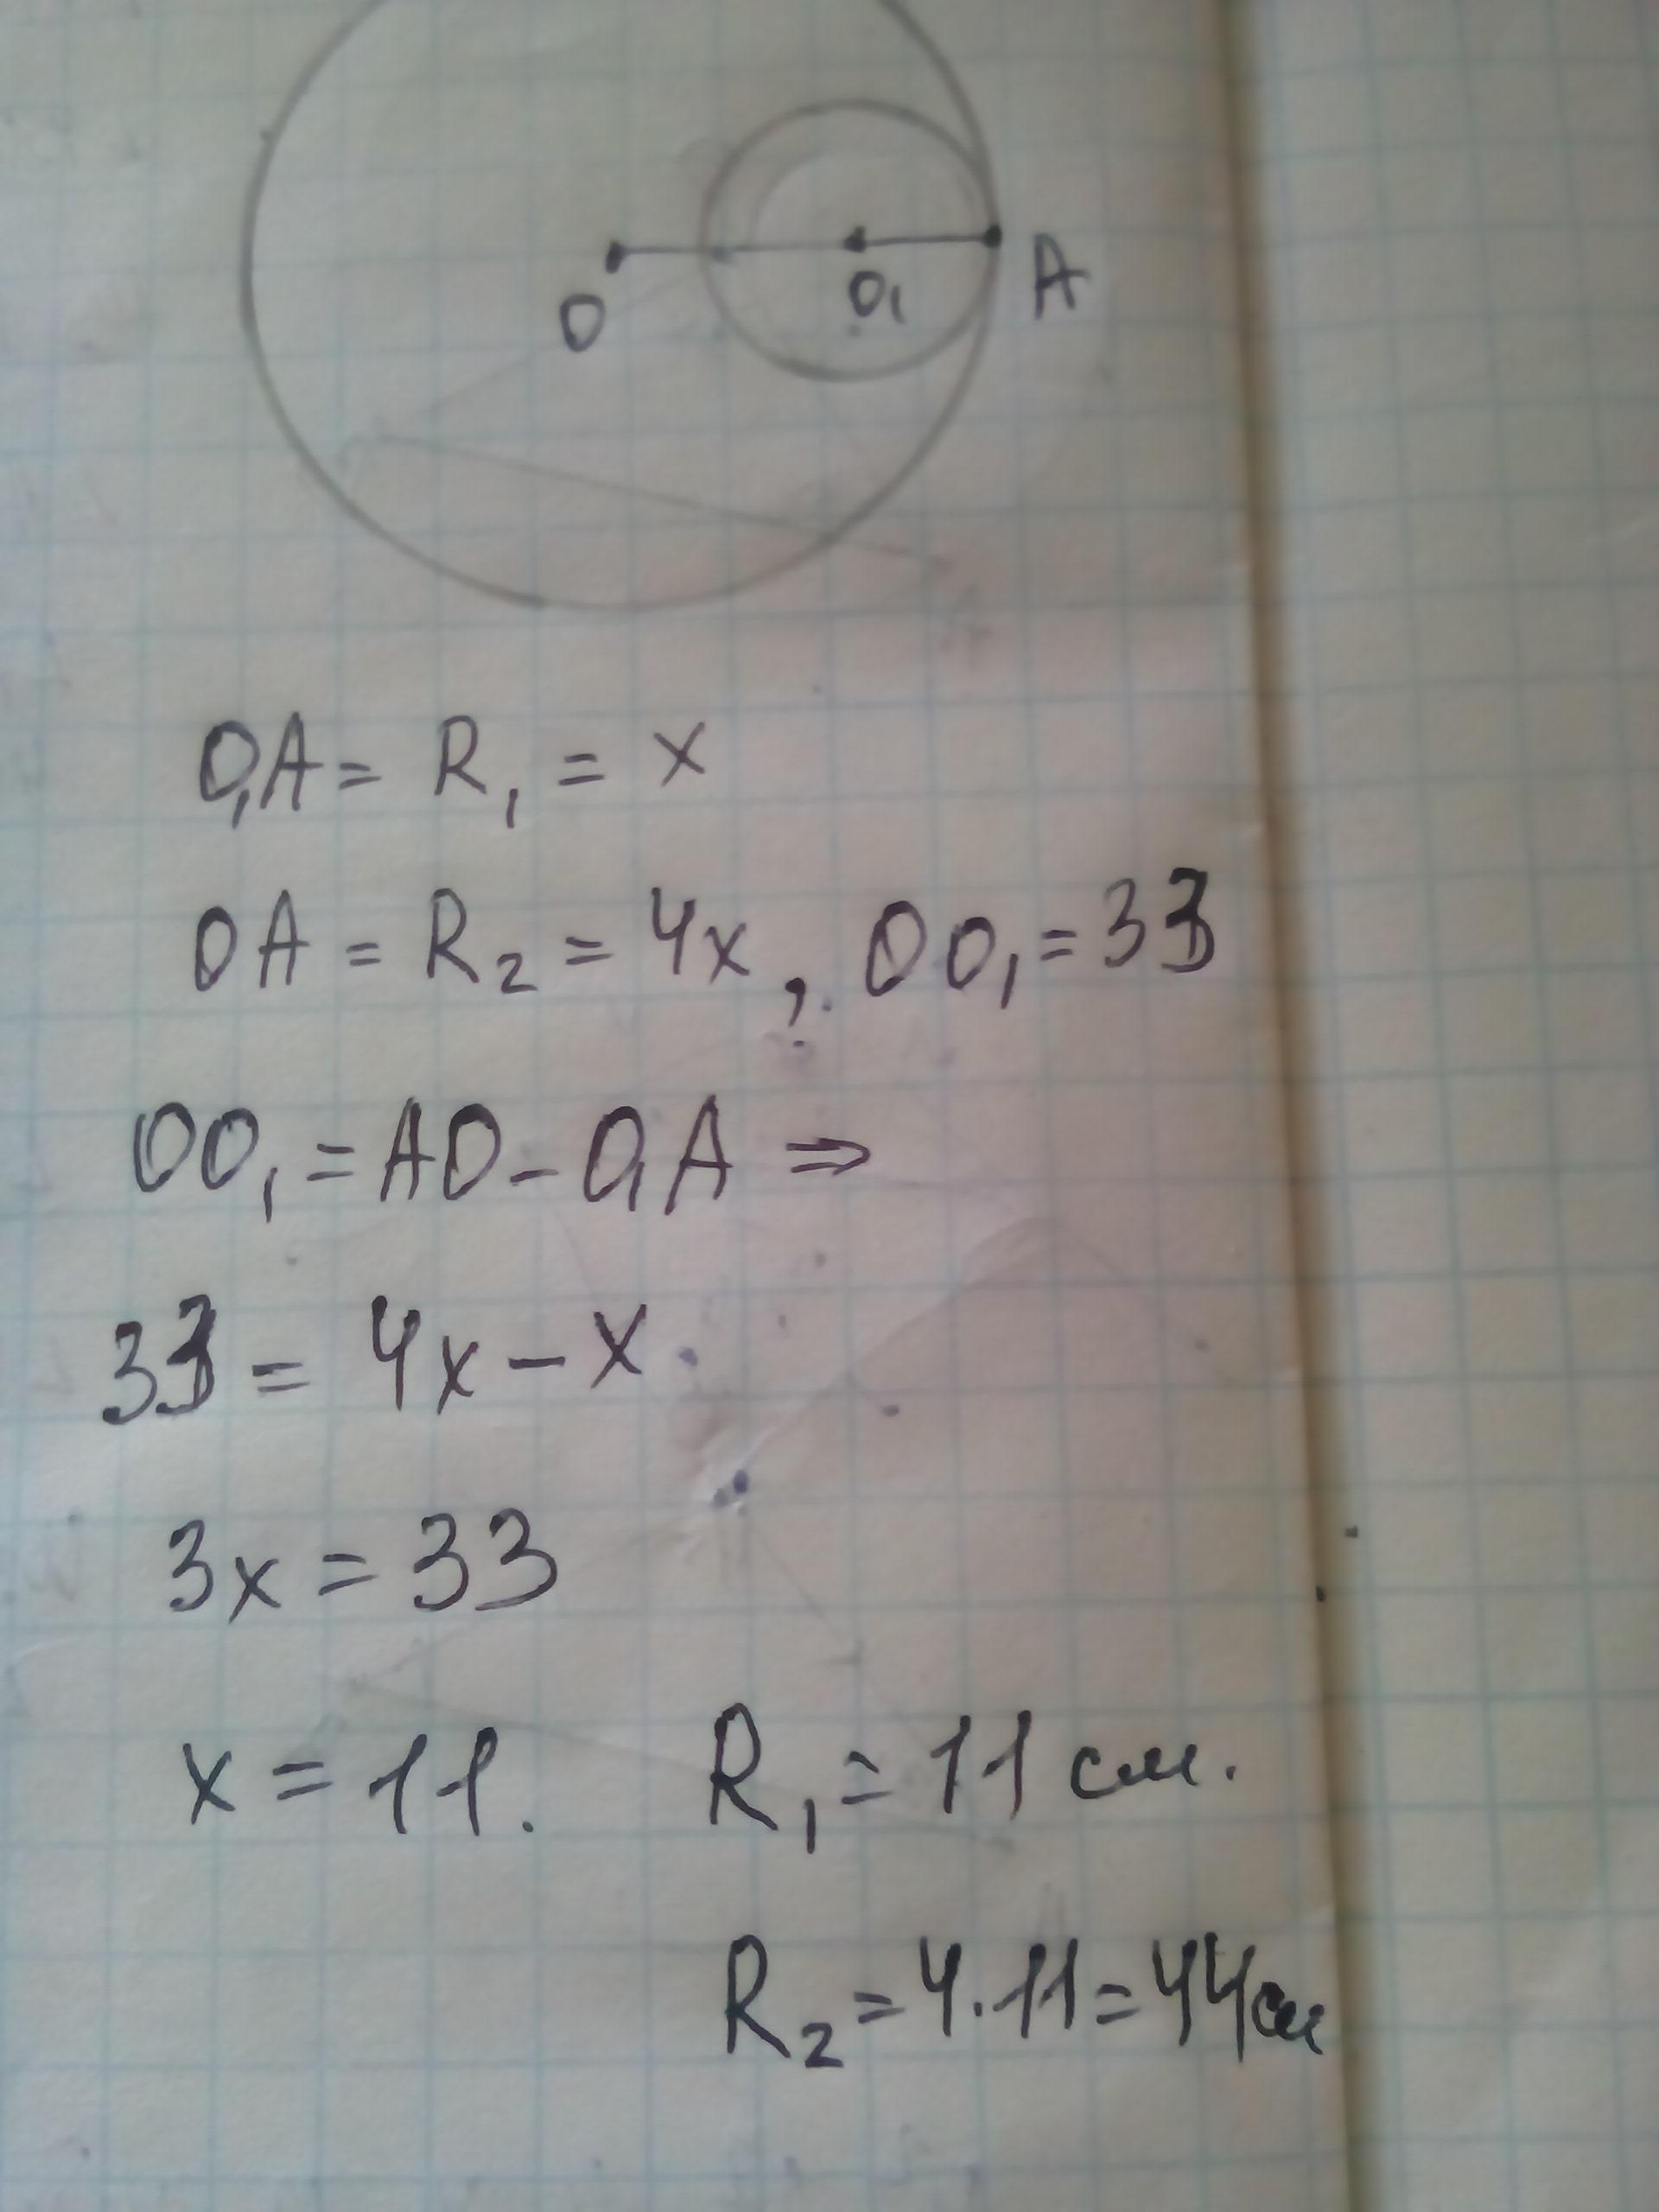 O O₁ A
O₁A = R₁ = x
OA = R₂ = 4x, OO₁ = 33
OO₁ = AO - O₁A ⇒
33 = 4x - x
3x = 33
x = 11. R₁ = 11 см.
R₂ = 4·11 = 44см